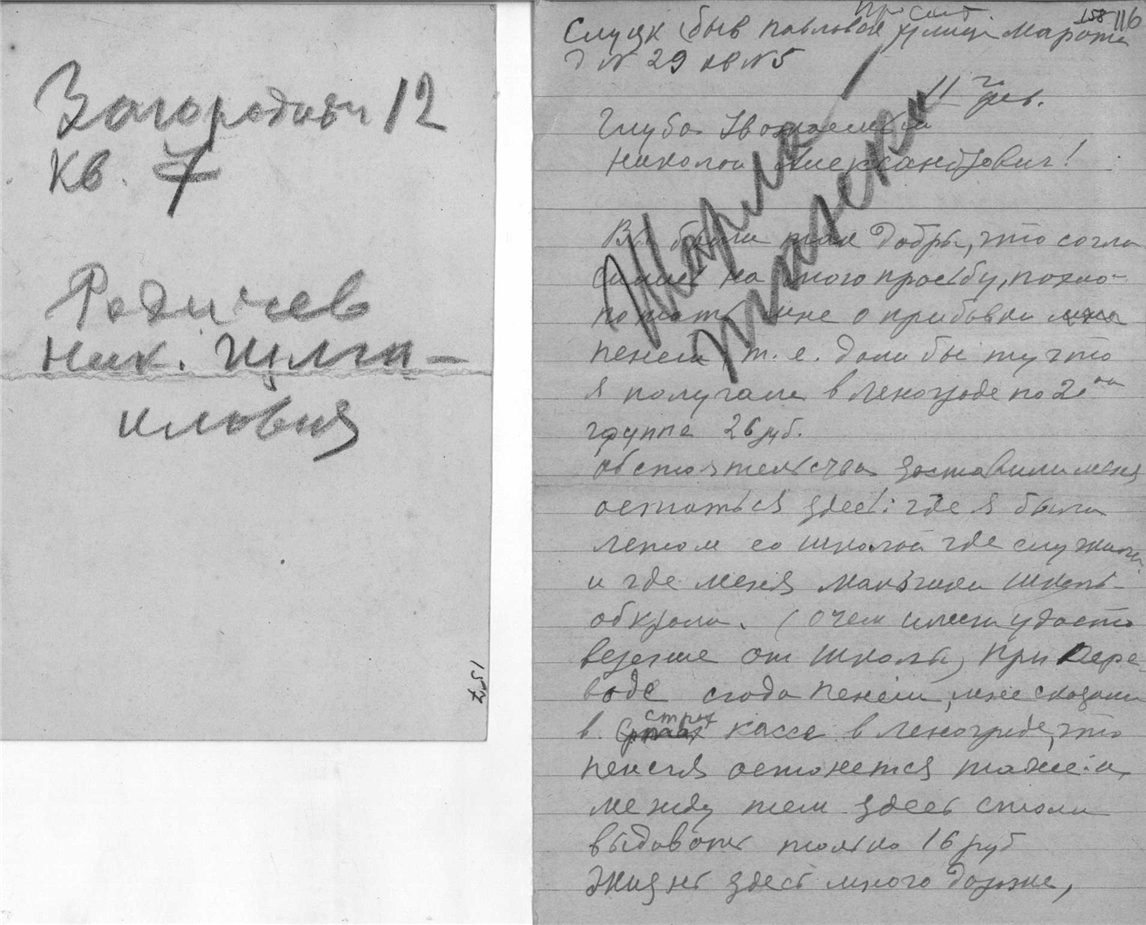 Загородный 12
кв. 7
Родичев
Ник. Измаи-
илович
157
просит
158 116
Слуцк (быв Павловск) улица Марата
д N 29 кв N 5
11 фев.
Глубо Уважаемый
Николай Александрович!
Вы были так добры, что согла
сились на мою просьбу, похло-
потать мне о прибавки
пенсии т. е. дали бы ту что
я получала в Ленограде по 2ой
группе 26 руб.
Обстоятельства заставили меня
остаться здесь: где я была
летом со школой где служила
и где меня мальчики школь
обкрали. (о чем имею удосто
верение от школы) При пере-
воде сюда пенсии, мне сказали
в. страх кассе в Ленограде, что
пенсия останется таже: а
между тем здесь стали
выдовать только 16 руб
Жизнь здесь много дороже,